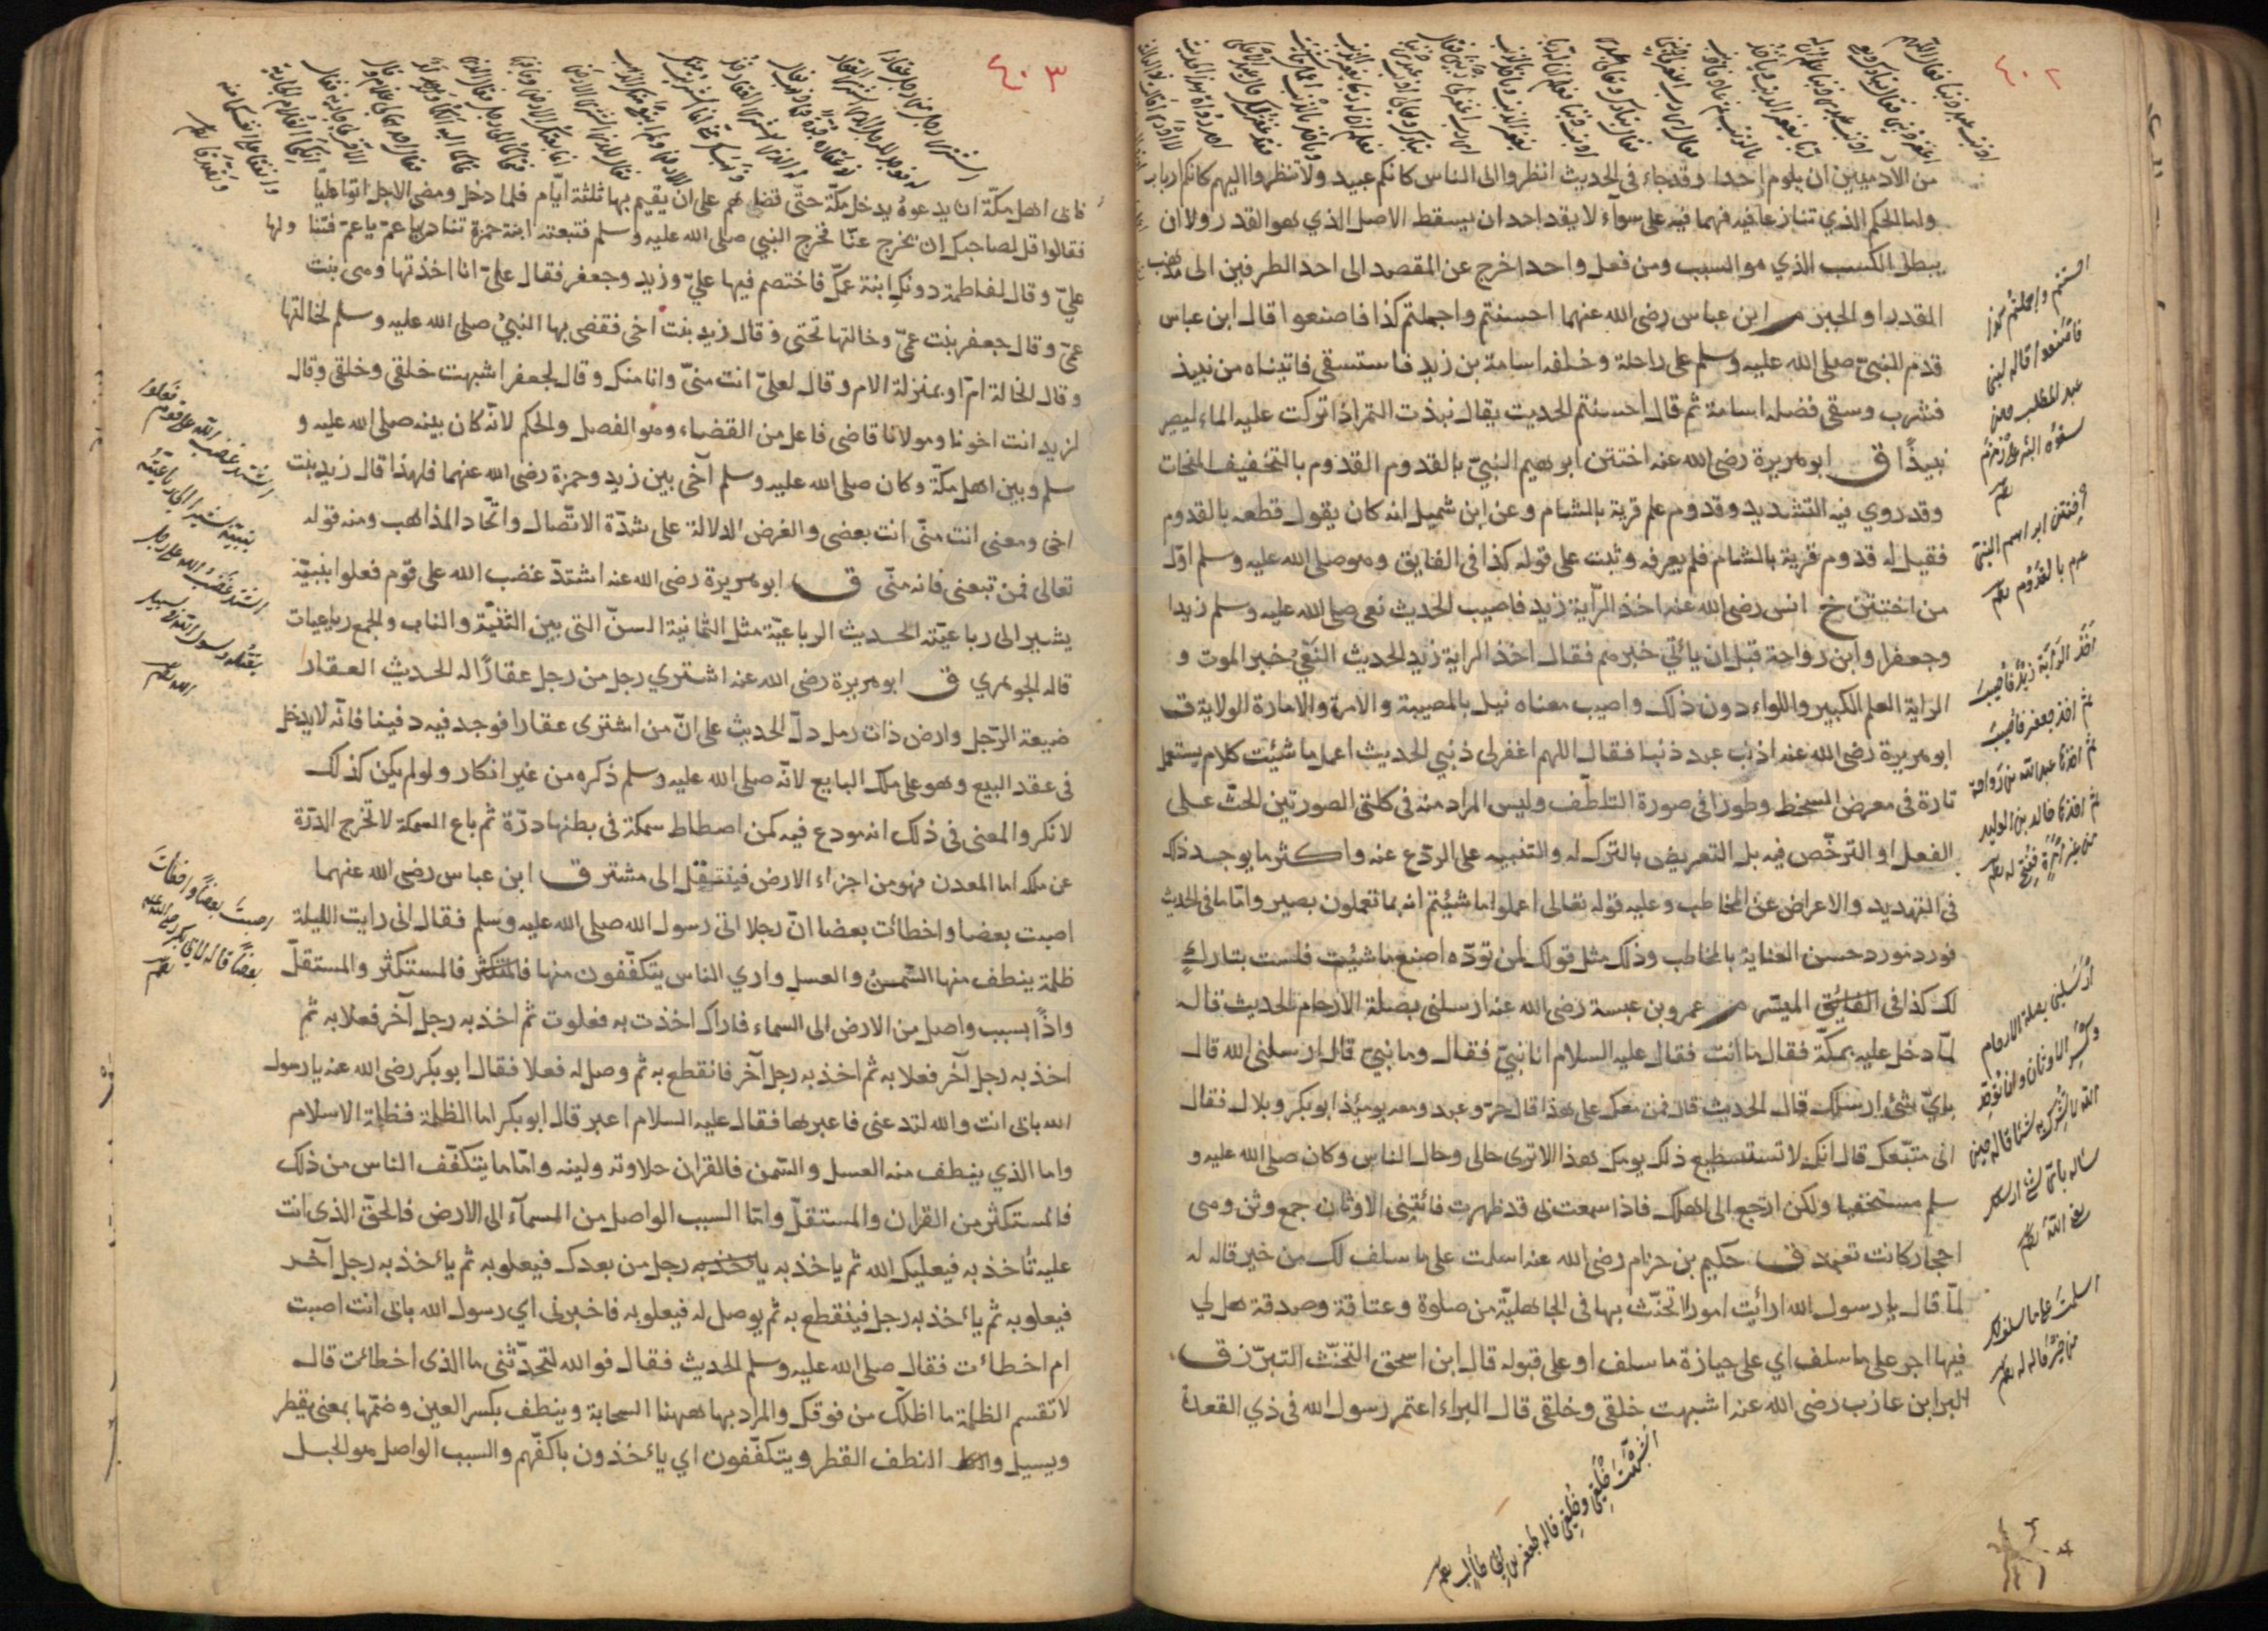 ٤٠٢
من الآدميين ان يلوم احدا وقد جاء فى الحديث انظروا الى الناس كانكم عبيد ولا تنظروا اليهم كانكم ارباب
ولما الحكم الذي تنازعا فيه فهما فيه على سوآء لا يقد احد ان يسقط الاصل الذي هو القدر ولا ان
يبطل الكسب الذي هو السبب ومن فعل واحدا خرج عن المقصد الى احد الطرفين الى مذهب
القدر او الجبر م ابن عباس رضى الله عنهما احسنتم واجملتم كذا فاصنعوا قال ابن عباس
قدم النبيّ صلى الله عليه وسلم على راحلة وخلفه اسامة بن زيد فاستسقى فاتيناه من نبيذ
فشرب وسقى فضله اسامة ثم قال احسنتم الحديث يقال نبذت التمر اذا تركت عليه الماء ليصر
نبيذًا ق ابو هريرة رضى الله عنه اختتن ابرهيم النبيّ بالقدوم القدوم بالتخفيف النحات
وقد روي فيه التشديد وقدوم علم قرية بالشام وعن ابن شميل انه كان يقول قطعه بالقدوم
فقيل له قدوم قرية بالشام فلم يعرفه وثبت على قوله كذا فى الفايق وهو صلى الله عليه وسلم اوّل
من اختتن خ انس رضى الله عنه اخذ الرّاية زيد فاصيب الحديث نعى صلى الله عليه وسلم زيدا
وجعفرا وابن رواحة قبل ان يأتي خبرهم فقال اخذ الراية زيد الحديث النَعْيُ خبر الموت و
الراية العلم الكبير واللواء دون ذلك واصيب معناه نيل بالمصيبة والامرة والامارة الولاية ق
ابو هريرة رضى الله عنه اذنب عبد ذنبا فقال اللهم اغفر لى ذنبي الحديث اعمل ما شئت كلام يستعمل
تارة فى معرض السخط وطورا فى صورة التلطّف وليس المراد منه فى كلتى الصورتين الحثّ على
الفعل او الترخّص فيه بل التعريض بالترك له والتنبيه على الردع عنه واكثر ما يوجد ذلك
فى التهديد والاعراض عن المخاطب وعليه قوله تعالى اعملوا ما شئتم انه بما تعملون بصير وامّا ما فى الحديث
فورد مورد حسن العناية بالمخاطب وذلك مثل قولك لمن تودّه اصنع ما شئت فلست بتارك
لك كذا فى الفايق الميسّر م عمرو بن عبسة رضى الله عنه ارسلنى بصلة الارحام الحديث قاله
لمّا دخل عليه بمكّة فقال ما انت فقال عليه السلام انا نبيّ فقال وما نبيّ قال ارسلنى الله قال
بايّ شئ ارسلك قال الحديث قال فمن معك على هذا قال حرّ وعبد ومعه يومئذ ابو بكر وبلال فقال
انى متّبعك قال انك لا تستطيع ذلك يومك هذا الا ترى حالى وحال الناس وكان صلى الله عليه و
سلم مستخفيا ولكن ارجع الى اهلك فاذا سمعت بى قد ظهرت فائتنى الاوثان جمع وثن وهى
احجار كانت تعبد ق حكيم بن حزام رضى الله عنه اسلمت على ما سلف لك من خير قاله له
لمّا قال يا رسول الله ارأيت امورا اتحنّث بها فى الجاهليّة من صلوة وعتاقة وصدقة هل لي
فيها اجر على ما سلف اي على حيازة ما سلف او على قبوله قال ابن اسحق التحنّث التبرّز ق
البرا ابن عازب رضى الله عنه اشبهت خلقى وخلقى قال البراء اعتمر رسول الله فى ذي القعدة
احسنتم واجملتم كذا
فاصنعوا قاله لبنى
عبد المطلب حين
اختتن ابراهيم النبىّ
بالقدوم
اخذ الراية زيد فاصيب
ثم اخذ جعفر فاصيب
ثم اخذها عبد الله بن رواحة
ثم اخذها خالد بن الوليد
من غير امرة ففتح له
ارسلنى بصلة الارحام
وكسر الاوثان وان يوحد
الله لا يشرك به شيئا قاله حين
ساله باىّ شئ ارسلك
اسلمت على ما سلف لك
من خير قاله له
اشبهت خلقى وخلقى قاله لجعفر بن ابى طالب
٤٠٣
فابى اهل مكّة ان يدعوهُ يدخل مكّة حتّى قاضاهم على ان يقيم بها ثلثة ايّام فلما دخل ومضى الاجل اتوا عليّا
فقالوا قل لصاحبك ان يخرج عنّا فخرج النبي صلى الله عليه وسلم فتبعته ابنة حمزة تنادى يا عمّ يا عمّ فتنا ولها
عليّ وقال لفاطمة دونك ابنة عمّك فاختصم فيها عليّ وزيد وجعفر فقال عليّ انا اخذتها وهى بنت
عمّي وقال جعفر بنت عمّي وخالتها تحتى وقال زيد بنت اخى فقضى بها النبيُ صلى الله عليه وسلم لخالتها
وقال الخالة امّ او بمنزلة الام وقال لعليّ انت منّي وانا منك وقال لجعفر اشبهت خلقى وخلقى وقال
لزيد انت اخونا ومولانا قاضى فاعل من القضاء وهو الفصل والحكم لانّه كان بينه صلى الله عليه و
سلم وبين اهل مكّة وكان صلى الله عليه وسلم آخى بين زيد وحمزة رضى الله عنهما فلهذا قال زيد بنت
اخى ومعنى انت منّى انت بعضى والغرض الدلالة على شدّة الاتّصال واتّحاد المذاهب ومنه قوله
تعالى فمن تبعنى فانه منّى ق ابو هريرة رضى الله عنه اشتدّ غضب الله على قوم فعلوا بنبيّه
يشير الى رباعيّته الحديث الرباعيّة مثل الثمانية السنّ التى بين الثنيّة والناب والجمع رباعيات
قاله الجوهري ق ابو هريرة رضى الله عنه اشتري رجل من رجل عقارًا له الحديث العقار
ضيعة الرّجل وارض ذات رمل دلّ الحديث على انّ من اشترى عقارا فوجد فيه دفينا فانّه لا يدخل
فى عقد البيع وهو على ملك البايع لانّه صلى الله عليه وسلم ذكره من غير انكار ولو لم يكن كذلك
لانكر والمعنى فى ذلك انه مودع فيه كمن اصطاط سمكة فى بطنها درّة ثم باع السمكة لا تخرج الدّرّة
عن ملكه اما المعدن فهو من اجزاء الارض فينتقل الى مشتر ق ابن عباس رضى الله عنهما
اصبت بعضا واخطائت بعضا انّ رجلا اتى رسول الله صلى الله عليه وسلم فقال انى رايت الليلة
ظلة ينطف منها السّمنُ والعسل واري الناس يتكفّفون منها فالمستكثر والمستقلّ
واذًا بسبب واصل من الارض الى السماء فاراك اخذت به فعلوت ثم اخذ به رجل آخر فعلا به ثم
اخذ به رجل آخر فعلا به ثم اخذ به رجل آخر فانقطع به ثم وصل له فعلا فقال ابو بكر رضى الله عنه يا رسول
الله بابى انت والله لتدعنى فاعبرها فقال عليه السلام اعبر قال ابو بكر اما الظلة فظلة الاسلام
واما الذي ينطف منه العسل والسّمن فالقران حلاوته ولينه وامّا ما يتكفّف الناس من ذلك
فالمستكثر من القران والمستقلّ وامّا السبب الواصل من السمآء الى الارض فالحقّ الذى انت
عليه تاخذ به فيعليك الله ثم ياخذ به رجل من بعدك فيعلو به ثم يأخذ به رجل آخر
فيعلو به ثم يأخذ به رجل فينقطع به ثم يوصل له فيعلو به فاخبرنى اي رسول الله بابى انت اصبت
ام اخطائت فقال صلى الله عليه وسلم الحديث فقال فوالله لتحدّثنى ما الذى اخطائت قال
لا تقسم الظلة ما اظلّك من فوقك والمراد بها ههنا السحابة وينطف بكسر العين وضمّها بمعنى يقطر
ويسيل والنطف القطر ويتكفّفون اي يأخذون باكفّهم والسبب الواصل هو الحبل
اشتد غضب الله على قوم فعلوا
بنبيّه يشير الى رباعيّته
اشتد غضب الله على رجل
يقتله رسول الله فى سبيل
الله
اصبت بعضا واخطات
بعضا قاله لابى بكر رضى الله عنه